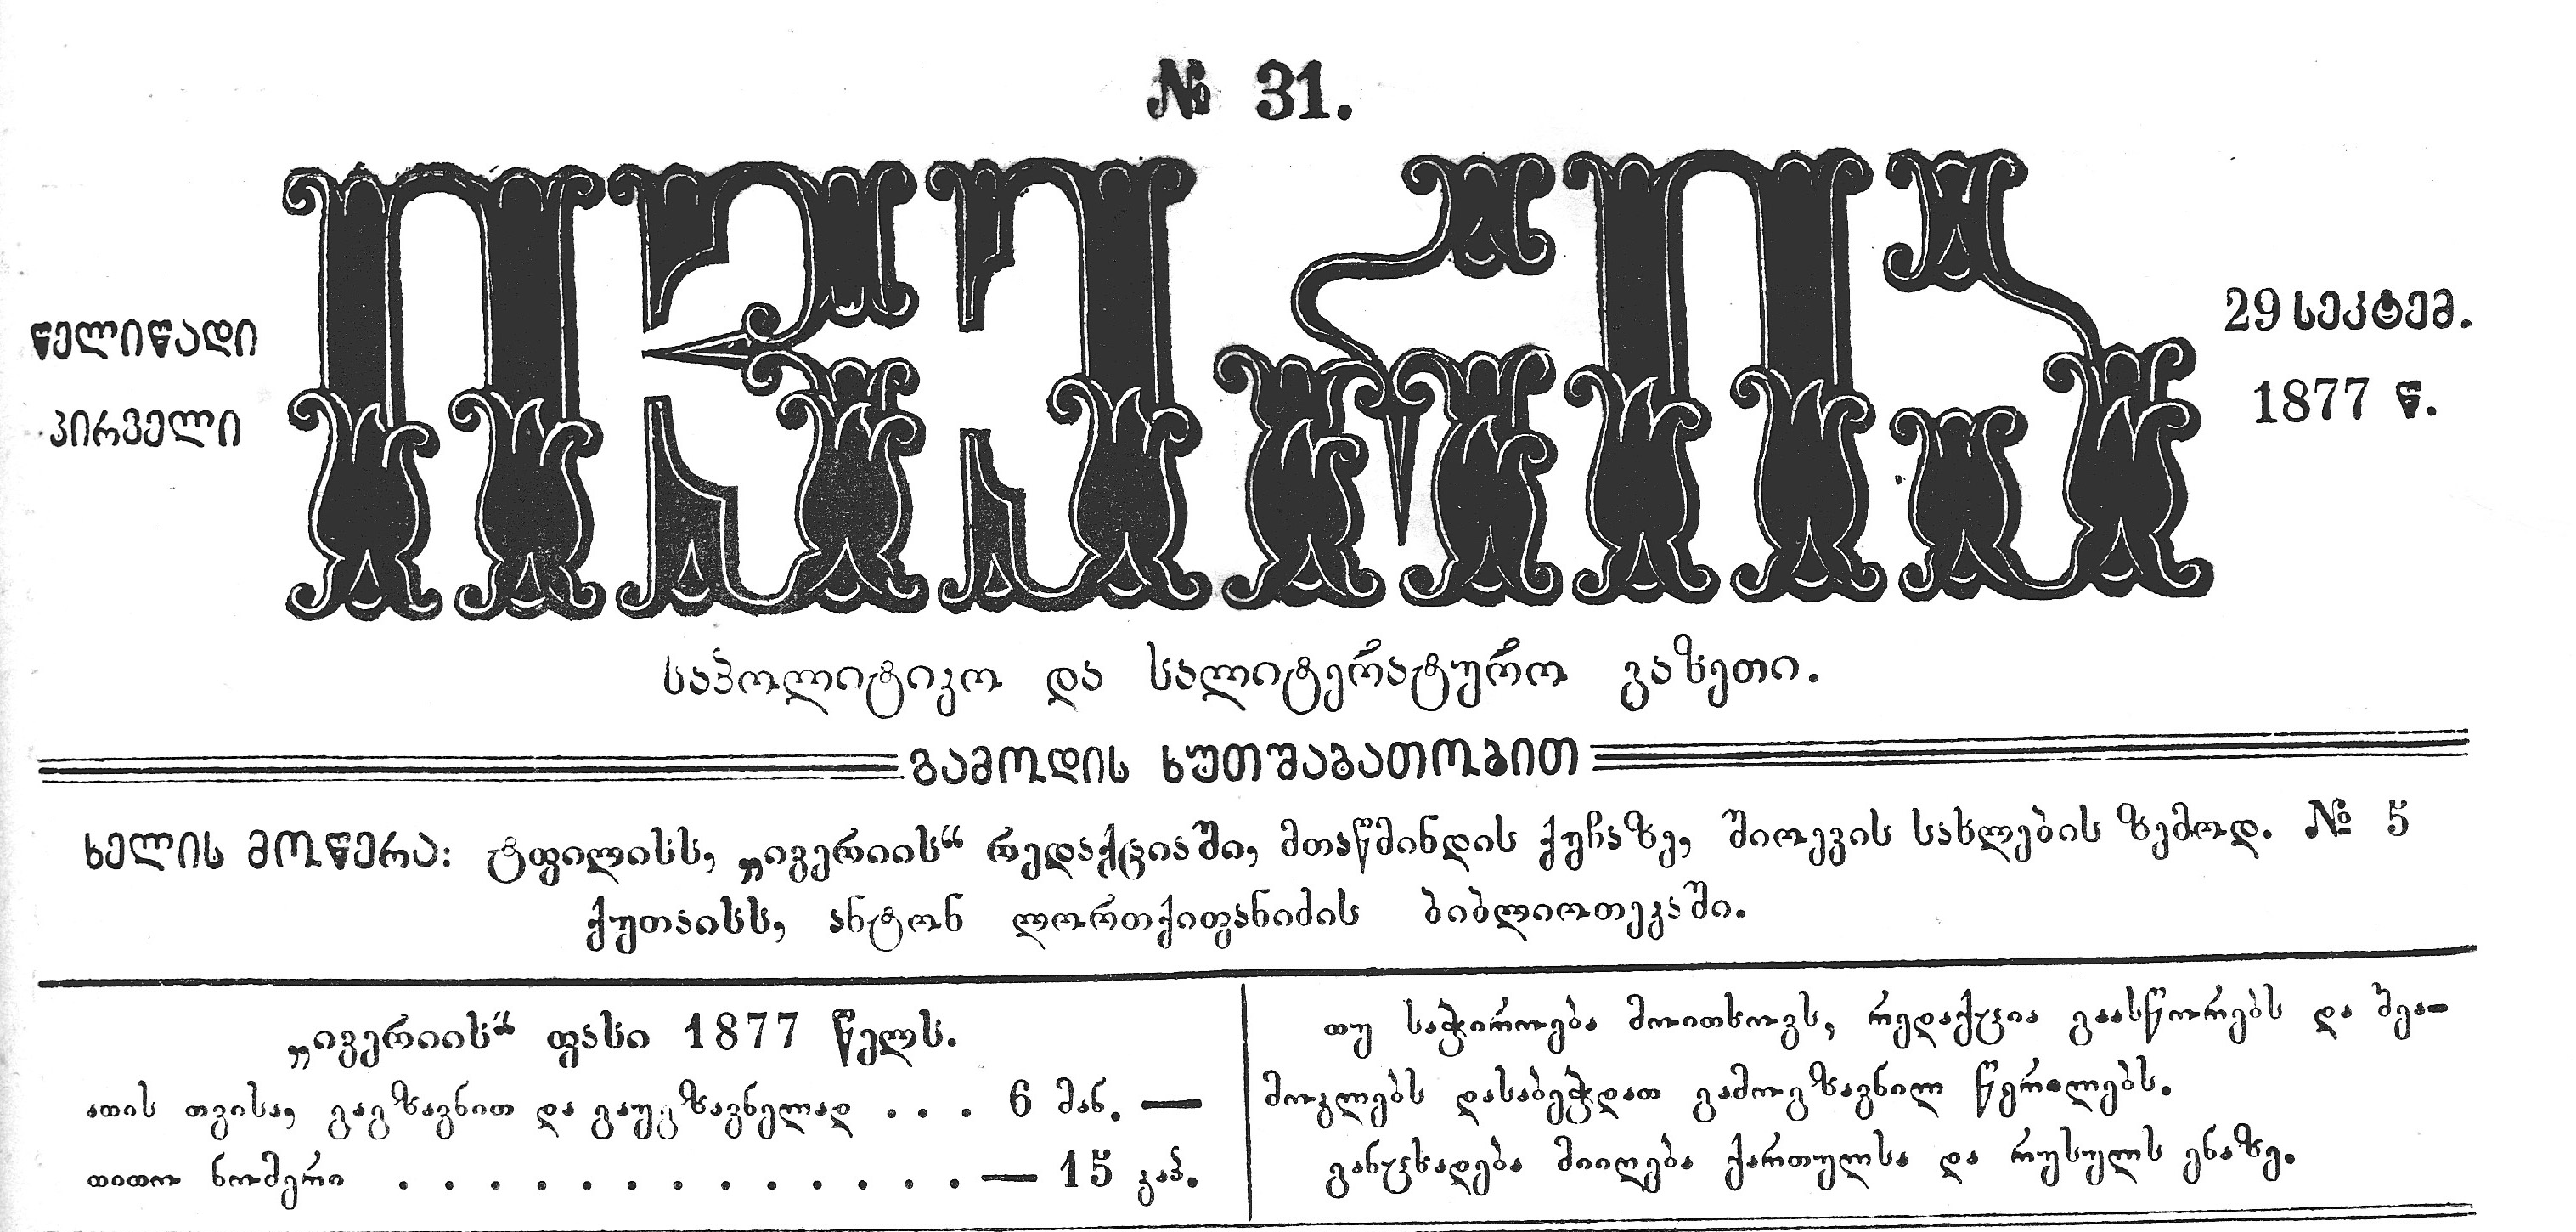 № 31.
ივერია
წელიწადი
პირველი
29 სეკტემ.
1877 წ.
საპოლიტიკო და სალიტერატურო გაზეთი.
გამოდის ხუთშაბათობით
ხელის მოწერა: ტფილისს, „ივერიის“ რედაქციაში, მთაწმინდის ქუჩაზე, შიოევის სახლების ზემოდ. № 5
ქუთაისს, ანტონ ლორთქიფანიძის ბიბლიოთეკაში.
„ივერიის“ ფასი 1877 წელს.
ათის თვისა, გაგზავნით და გაუგზავნელად . . . 6 მან. —
თითო ნომერი . . . . . . . . . . . . . . . — 15 კაპ.
თუ საჭიროება მოითხოვს, რედაქცია გაასწორებს და შეა-
მოკლებს დასაბეჭდათ გამოგზავნილ წერილებს.
განცხადება მიიღება ქართულსა და რუსულს ენაზე.